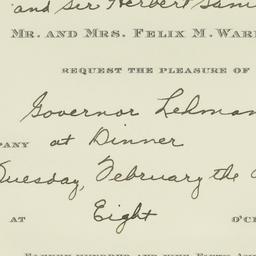 and Sir Herbert Sam
MR. AND MRS. FELIX M. WAR
REQUEST THE PLEASURE OF
Governor Lehman
PANY at Dinner
Tuesday, February the
AT Eight O'C